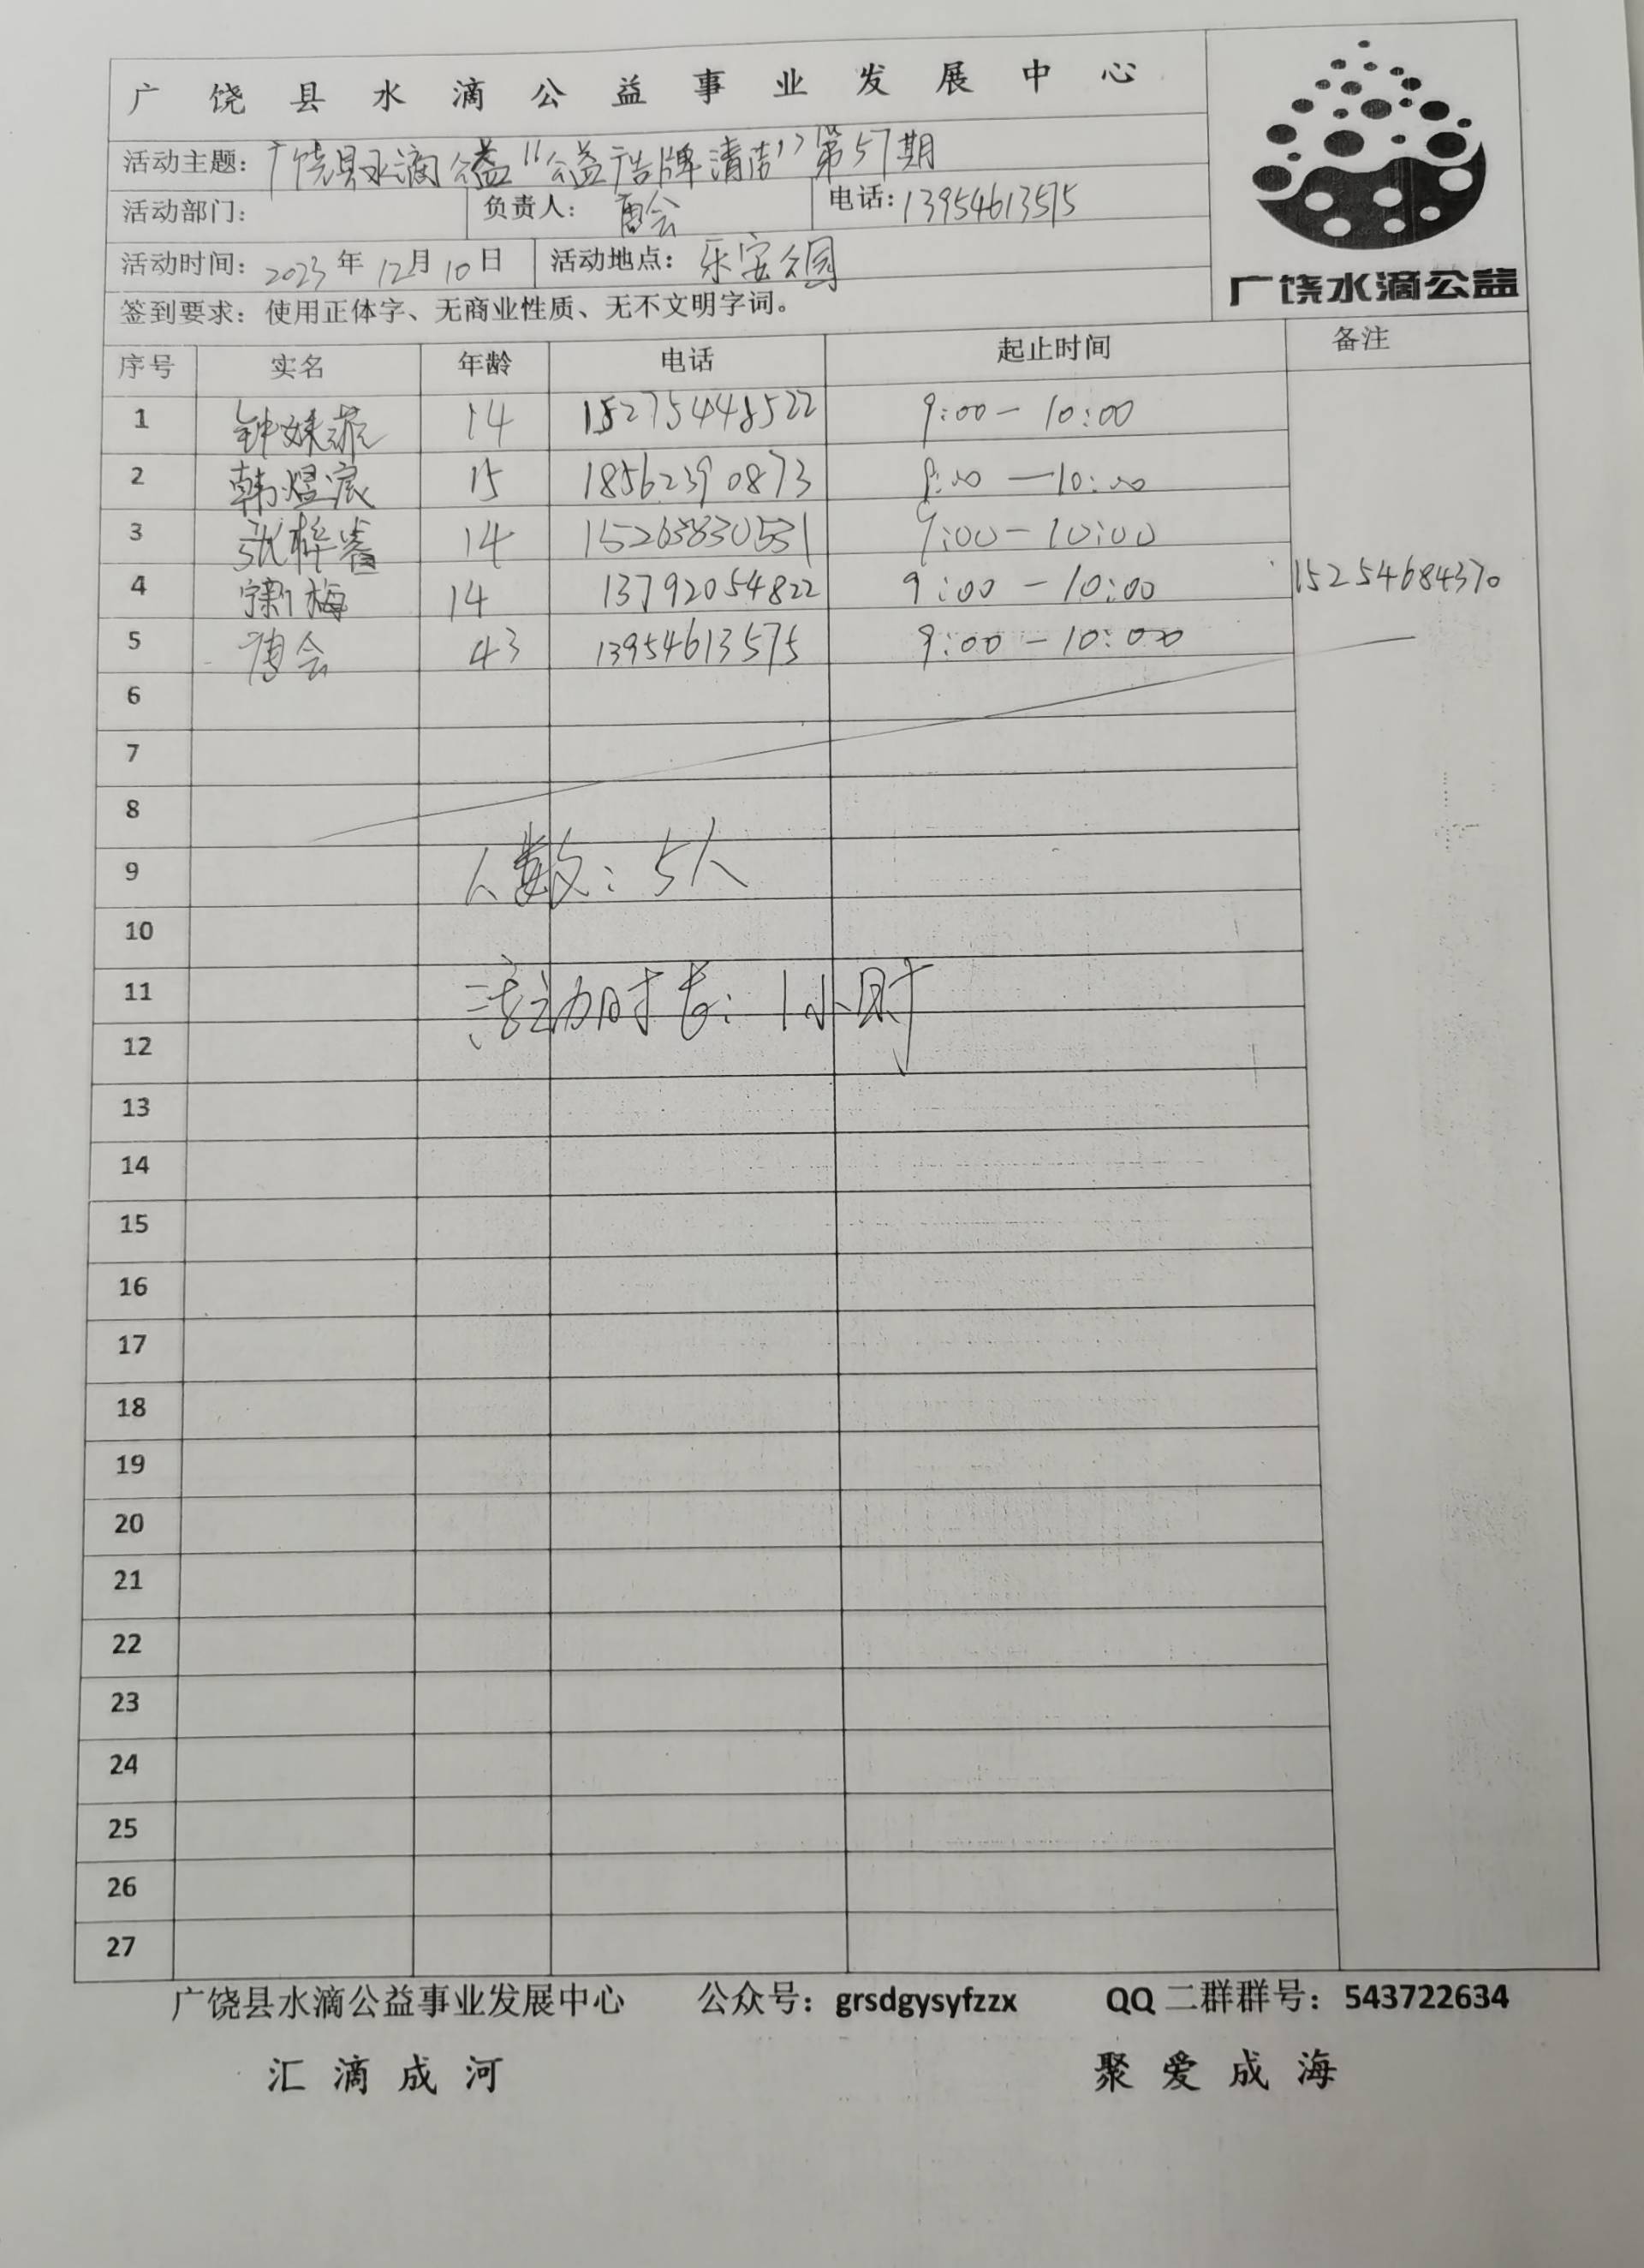 广饶县水滴公益事业发展中心
活动主题：广饶县水滴公益"公益广告牌清洁"第57期
活动部门： 负责人： 会 电话：13954613575
活动时间：2023年12月10日 活动地点：乐安公园
签到要求：使用正体字、无商业性质、无不文明字词。
广饶水滴公益
序号 实名 年龄 电话 起止时间 备注
1 钟姝 14 15275448522 9:00-10:00
2 韩煜宸 15 18562390873 9:00—10:00
3 张梓睿 14 15263830531 9:00-10:00
4 梅 14 13792054822 9:00-10:00 15254684370
5 会 43 13954613575 9:00-10:00
6
7
8
9 人数：5人
10
11 活动时长：1小时
12
13
14
15
16
17
18
19
20
21
22
23
24
25
26
27
广饶县水滴公益事业发展中心 公众号：grsdgysyfzzx QQ二群群号：543722634
汇滴成河 聚爱成海